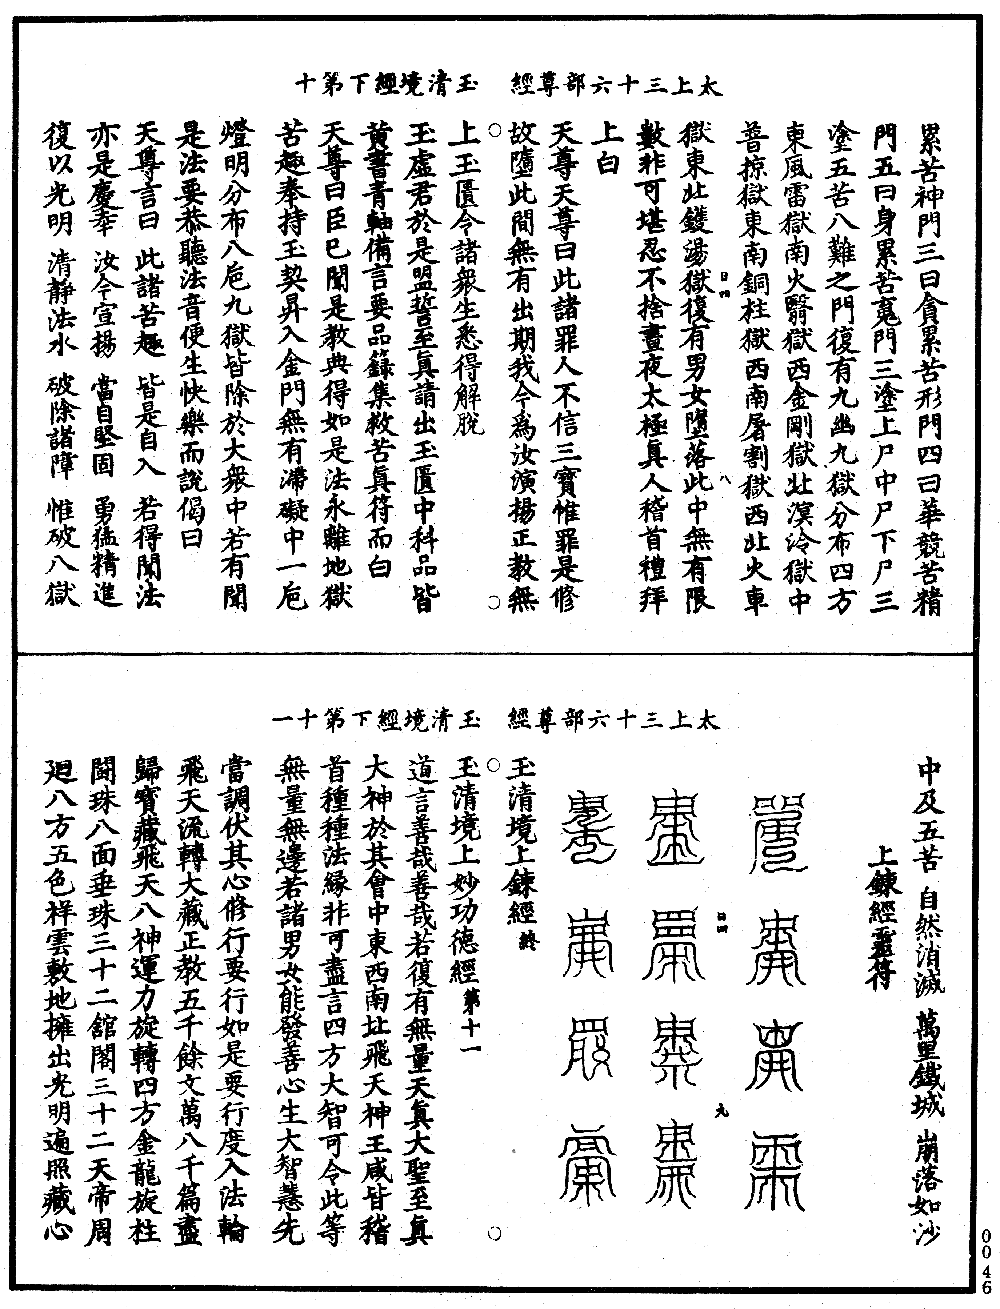 太上三十六部尊經　玉清境經下第十
累苦神門三曰貪累苦形門四曰華競苦精
門五曰身累苦䰟門三塗上尸中尸下尸三
塗五苦八難之門復有九幽九獄分布四方
東風雷獄南火翳獄西金剛獄北溟泠獄中
普掠獄東南銅柱獄西南屠割獄西北火車
獄東北鑊湯獄復有男女墮落此中無有限
數非可堪忍不捨晝夜太極真人稽首禮拜
上白
天尊天尊曰此諸罪人不信三寶惟罪是修
故隨此間無有出期我今爲汝演揚正教無
上玉匱令諸衆生悉得解脫
玉虛君於是盟誓至真請出玉匱中科品皆
黃書青軸備言要品籙集救苦真符而白
天尊曰臣已聞是教典得如是法永離地獄
苦趣奉持玉契昇入金門無有滯礙中一卮
燈明分布八卮九獄皆除於大衆中若有聞
是法要恭聽法音便生快樂而說偈曰
天尊言曰　此諸苦趣　皆是自入　若得聞法
亦是慶幸　汝今宣揚　當自堅固　勇猛精進
復以光明　清靜法水　破除諸障　惟破八獄
太上三十六部尊經　玉清境經下第十一
中及五苦　自然消滅　萬里鐵城　崩落如沙
上鍊經靈符
玉清境上鍊經終
玉清境上妙功德經第十一
道言善哉善哉若復有無量天真大聖至真
大神於其會中東西南北飛天神王咸皆稽
首種種法緣非可盡言四方大智可令此等
無量無邊若諸男女能發善心生大智慧先
當調伏其心修行要行如是要行度入法輪
飛天流轉大藏正教五千餘文萬八千篇盡
歸寶藏飛天八神運力旋轉四方金龍旋柱
鬪珠八面垂珠三十二館閣三十二天帝周
廻八方五色祥雲敷地擁出光明遍照藏心
0046